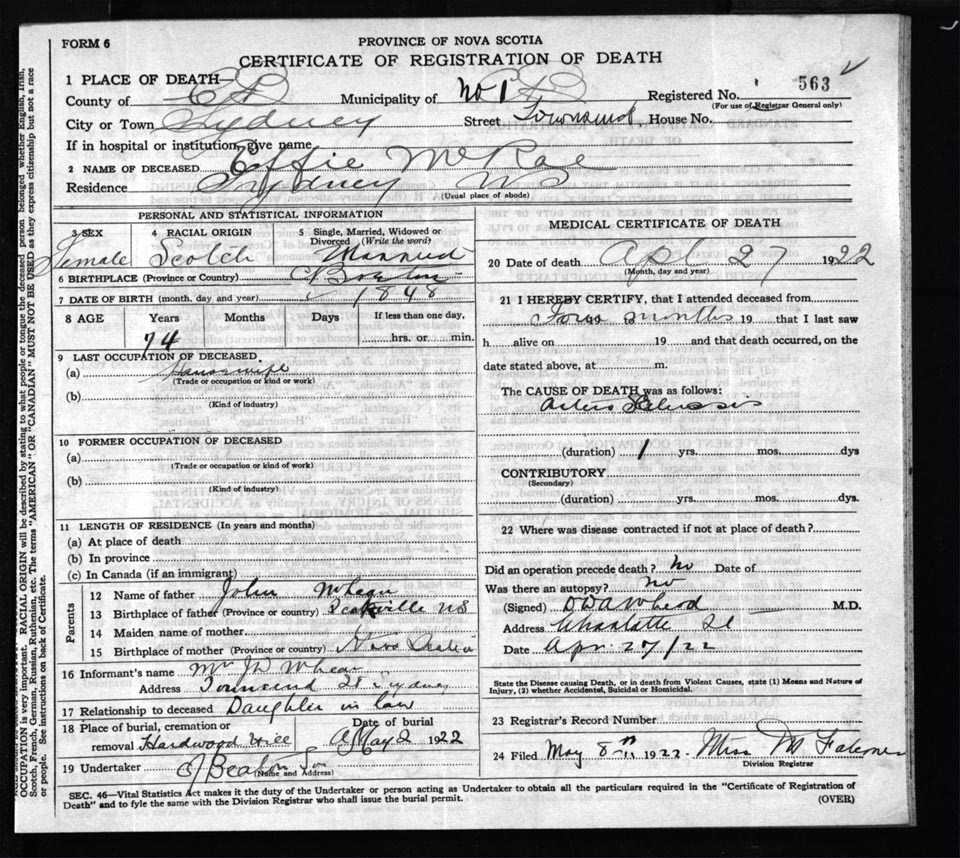 FORM 6
PROVINCE OF NOVA SCOTIA
CERTIFICATE OF REGISTRATION OF DEATH
563
1 PLACE OF DEATH—
County of CB Municipality of No 1 CB Registered No.
(For use of Registrar General only)
City or Town Sydney Street Townsend, House No.
If in hospital or institution, give name
2 NAME OF DECEASED Effie McRae
Residence Sydney NS
(Usual place of abode)
PERSONAL AND STATISTICAL INFORMATION
3 SEX 4 RACIAL ORIGIN 5 Single, Married, Widowed or Divorced (Write the word)
Female Scotch Married
6 BIRTHPLACE (Province or Country) C Breton
7 DATE OF BIRTH (month, day, and year) 1848
8 AGE Years Months Days If less than one day,
74 hrs. or min.
9 LAST OCCUPATION OF DECEASED.
(a) Housewife
(Trade or occupation or kind or work)
(b)
(Kind of industry)
10 FORMER OCCUPATION OF DECEASED
(a)
(Trade or occupation or kind of work)
(b)
(Kind of industry)
11 LENGTH OF RESIDENCE (In years and months)
(a) At place of death
(b) In province
(c) In Canada (if an immigrant)
Parents
12 Name of father John
13 Birthplace of father (Province or country) NS
14 Maiden name of mother
15 Birthplace of mother (Province or country) Nova Scotia
16 Informant's name
Address Townsend St Sydney
17 Relationship to deceased Daughter in law
18 Place of burial, cremation or removal Hardwood Hill Date of burial May 2 1922
19 Undertaker Beaton Son
(Name and Address)
MEDICAL CERTIFICATE OF DEATH
20 Date of death Apl 27 1922
(Month, day and year)
21 I HEREBY CERTIFY, that I attended deceased from
Four 19 to months 19 that I last saw
h alive on 19 and that death occurred, on the
date stated above, at m.
The CAUSE OF DEATH was as follows:
Arterio Sclerosis
(duration) 1 yrs. mos. dys
CONTRIBUTORY
(Secondary)
(duration) yrs. mos. dys.
22 Where was disease contracted if not at place of death?
Did an operation precede death? No Date of
Was there an autopsy? No
(Signed) M.D.
Address Charlotte St
Date Apr. 27/22
State the Disease causing Death, or in death from Violent Causes, state (1) Means and Nature of Injury, (2) whether Accidental, Suicidal or Homicidal.
23 Registrar's Record Number
24 Filed May 8th 1922 Miss M Falconer
Division Registrar
SEC. 46—Vital Statistics Act makes it the duty of the Undertaker or person acting as Undertaker to obtain all the particulars required in the "Certificate of Registration of
Death" and to fyle the same with the Division Registrar who shall issue the burial permit.
(OVER)
OCCUPATION is very important. RACIAL ORIGIN will be described by stating to what people or tongue the deceased person belonged whether English, Irish,
Scotch, French, German, Russian, Ruthenian, etc. The terms "AMERICAN" OR "CANADIAN" MUST NOT BE USED as they express citizenship but not a race
or people. See instructions on back of Certificate.